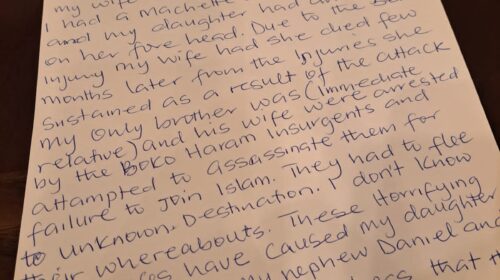 my wife
I had a machette
and my daughter had
on her fore head. Due to the
injury my wife had she died few
months later from the injuries she
sustained as a result of the attack
my only brother was (immediate
relative) and his wife were arrested
by the Boko Haram Insurgents and
attampted to assassinate them for
failure to Join Islam. They had to flee
to unknown. Destination. I don't know
their whereabouts. These Horrifying
have caused my daughter
My nephew Daniel and
that